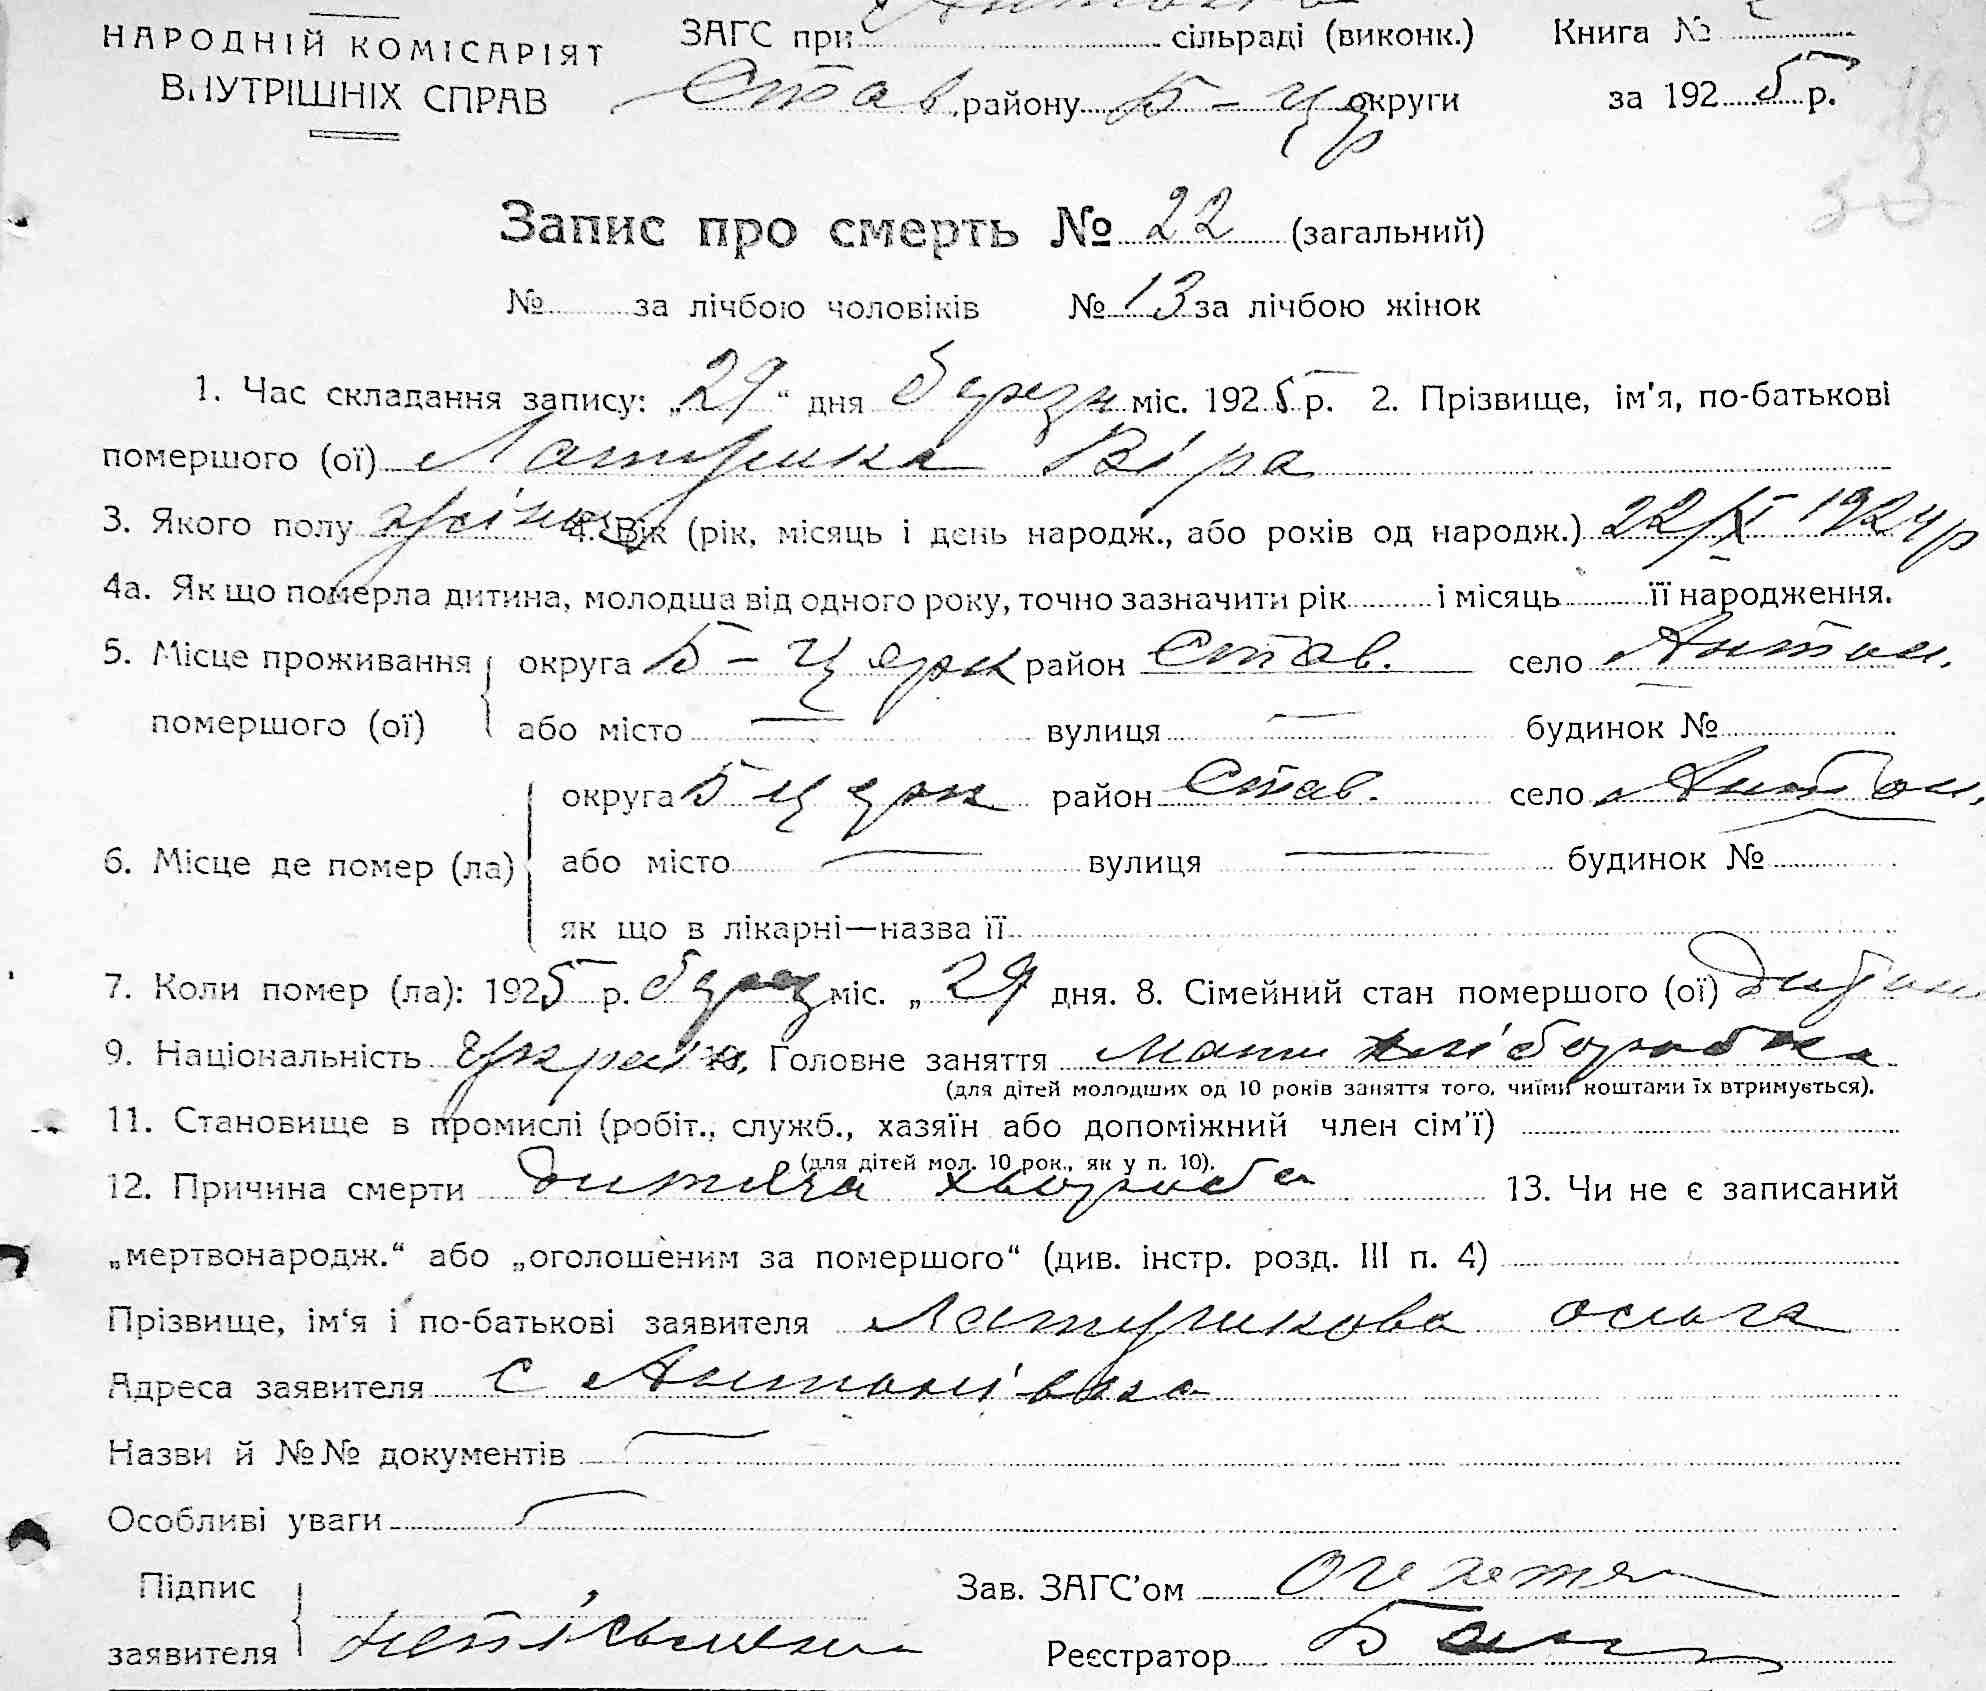 НАРОДНІЙ КОМІСАРІЯТ
ВНУТРІШНІХ СПРАВ
ЗАГС при сільраді (виконк.) Книга №
Став. району Б-Цр округи за 1925 р.
Запис про смерть № 22 (загальний)
№ за лічбою чоловіків № 13 за лічбою жінок
1. Час складання запису: „29“ дня березн міс. 1925 р. 2. Прізвище, ім'я, по-батькові
помершого (ої) Віра
3. Якого полу жіноч 4. Вік (рік, місяць і день народж., або років од народж.) 22/XI 1924 р
4а. Як що померла дитина, молодша від одного року, точно зазначити рік і місяць її народження.
5. Місце проживання помершого (ої) округа Б-Церк район Став. село Антон.
або місто — вулиця — будинок №
6. Місце де помер (ла) округа Б Церк район Став. село Антон.
або місто — вулиця — будинок №
як що в лікарні—назва її
7. Коли помер (ла): 1925 р. берез міс. „29 дня. 8. Сімейний стан помершого (ої) дитина
9. Національність Украі 10. Головне заняття мати хліборобка
(для дітей молодших од 10 років заняття того, чиїми коштами їх втримується).
11. Становище в промислі (робіт., служб., хазяїн або допоміжний член сім'ї)
(для дітей мол. 10 рок., як у п. 10).
12. Причина смерти дитяча хвороба 13. Чи не є записаний
„мертвонародж.“ або „оголошеним за помершого“ (див. інстр. розд. III п. 4)
Прізвище, ім'я і по-батькові заявителя ольга
Адреса заявителя с Антонівка
Назви й №№ документів —
Особливі уваги —
Підпис заявителя Зав. ЗАГС'ом
Реєстратор